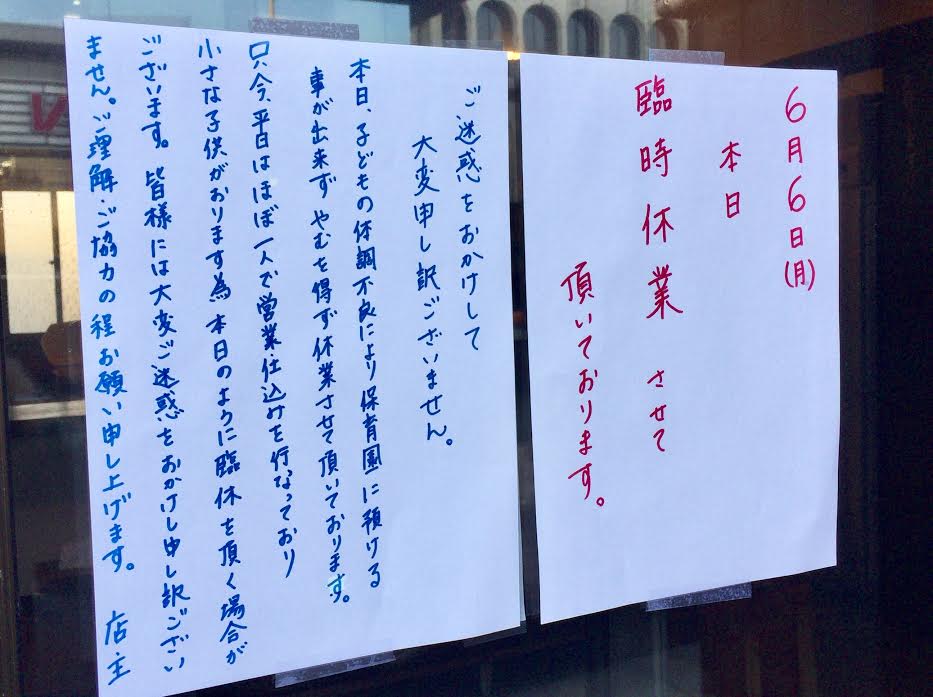 6月6日(月)
本日
臨時休業 させて
頂いております。
ご迷惑をおかけして
大変申し訳ございません。
本日、子どもの体調不良により保育園に預ける
事が出来ず やむを得ず休業させて頂いております。
只今、平日はほぼ一人で営業・仕込みを行なっており
小さな子供がおります為 本日のように臨休を頂く場合が
ございます。皆様には大変ご迷惑をおかけし申し訳ござい
ません。ご理解・ご協力の程お願い申し上げます。 店主